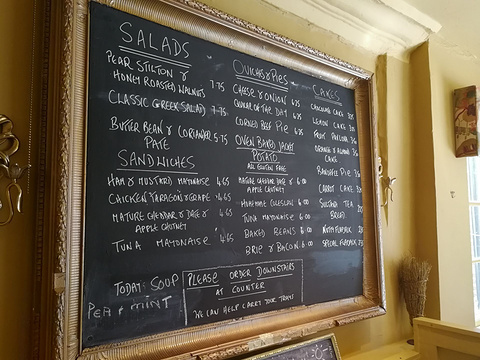 SALADS
PEAR STILTON &
HONEY ROASTED WALNUTS 7.75
CLASSIC GREEK SALAD 7.75
BUTTER BEAN & CORIANDER 5.75
PATE
SANDWICHES
HAM & MUSTARD MAYONAISE 4.65
CHICKEN TARAGON & GRAPE 4.65
MATURE CHEDDAR & DATE & 4.65
APPLE CHUTNEY
TUNA MAYONAISE 4.65
TODAY: SOUP
PEA & MINT
QUICHES & PIES
CHEESE & ONION 6.75
QUICHE OF THE DAY 6.75
CORNED BEEF PIE 6.75
OVEN BAKED JACKET
POTATO
ALL GLUTEN FREE
MATURE CHEDDAR DATE & 6.00
APPLE CHUTNEY
HOMEMADE COLESLAW 6.00
TUNA MAYONAISE 6.00
BAKED BEANS 6.00
BRIE & BACON 6.00
PLEASE ORDER DOWNSTAIRS
AT COUNTER
WE CAN HELP CARRY YOUR TRAYS
CAKES
CHOCOLATE CAKE
LEMON CAKE
FRUIT PAVLOVA
ORANGE & ALMOND
CAKE
BANOFFEE PIE
CARROT CAKE
SULTANA TEA
BREAD
NUTTY FLAPJACK
SPECIAL FLAPJACK